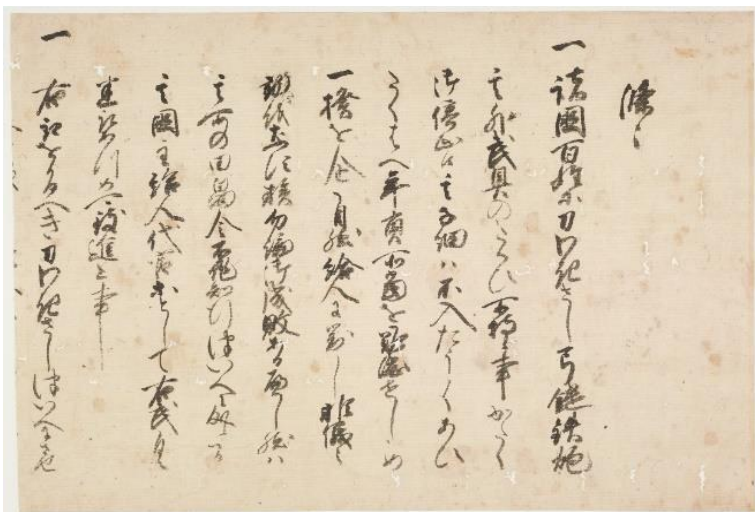 條々
一 諸國百姓等刀わきさし弓鑓鉄炮
其外武具のたくひ所持候事かたく
御停止候其子細ハ不入たうくあひ
たくハへ年貢所當を難渋せしめ
一揆を企自然給人に対し非儀之
族勿論御成敗あるへし然ハ
其所の田畠令不作知行ついへに成
其國主給人代官として右武具
悉取あつめ可致進上事
一 右取をかるへき刀わきさしついへにさせ